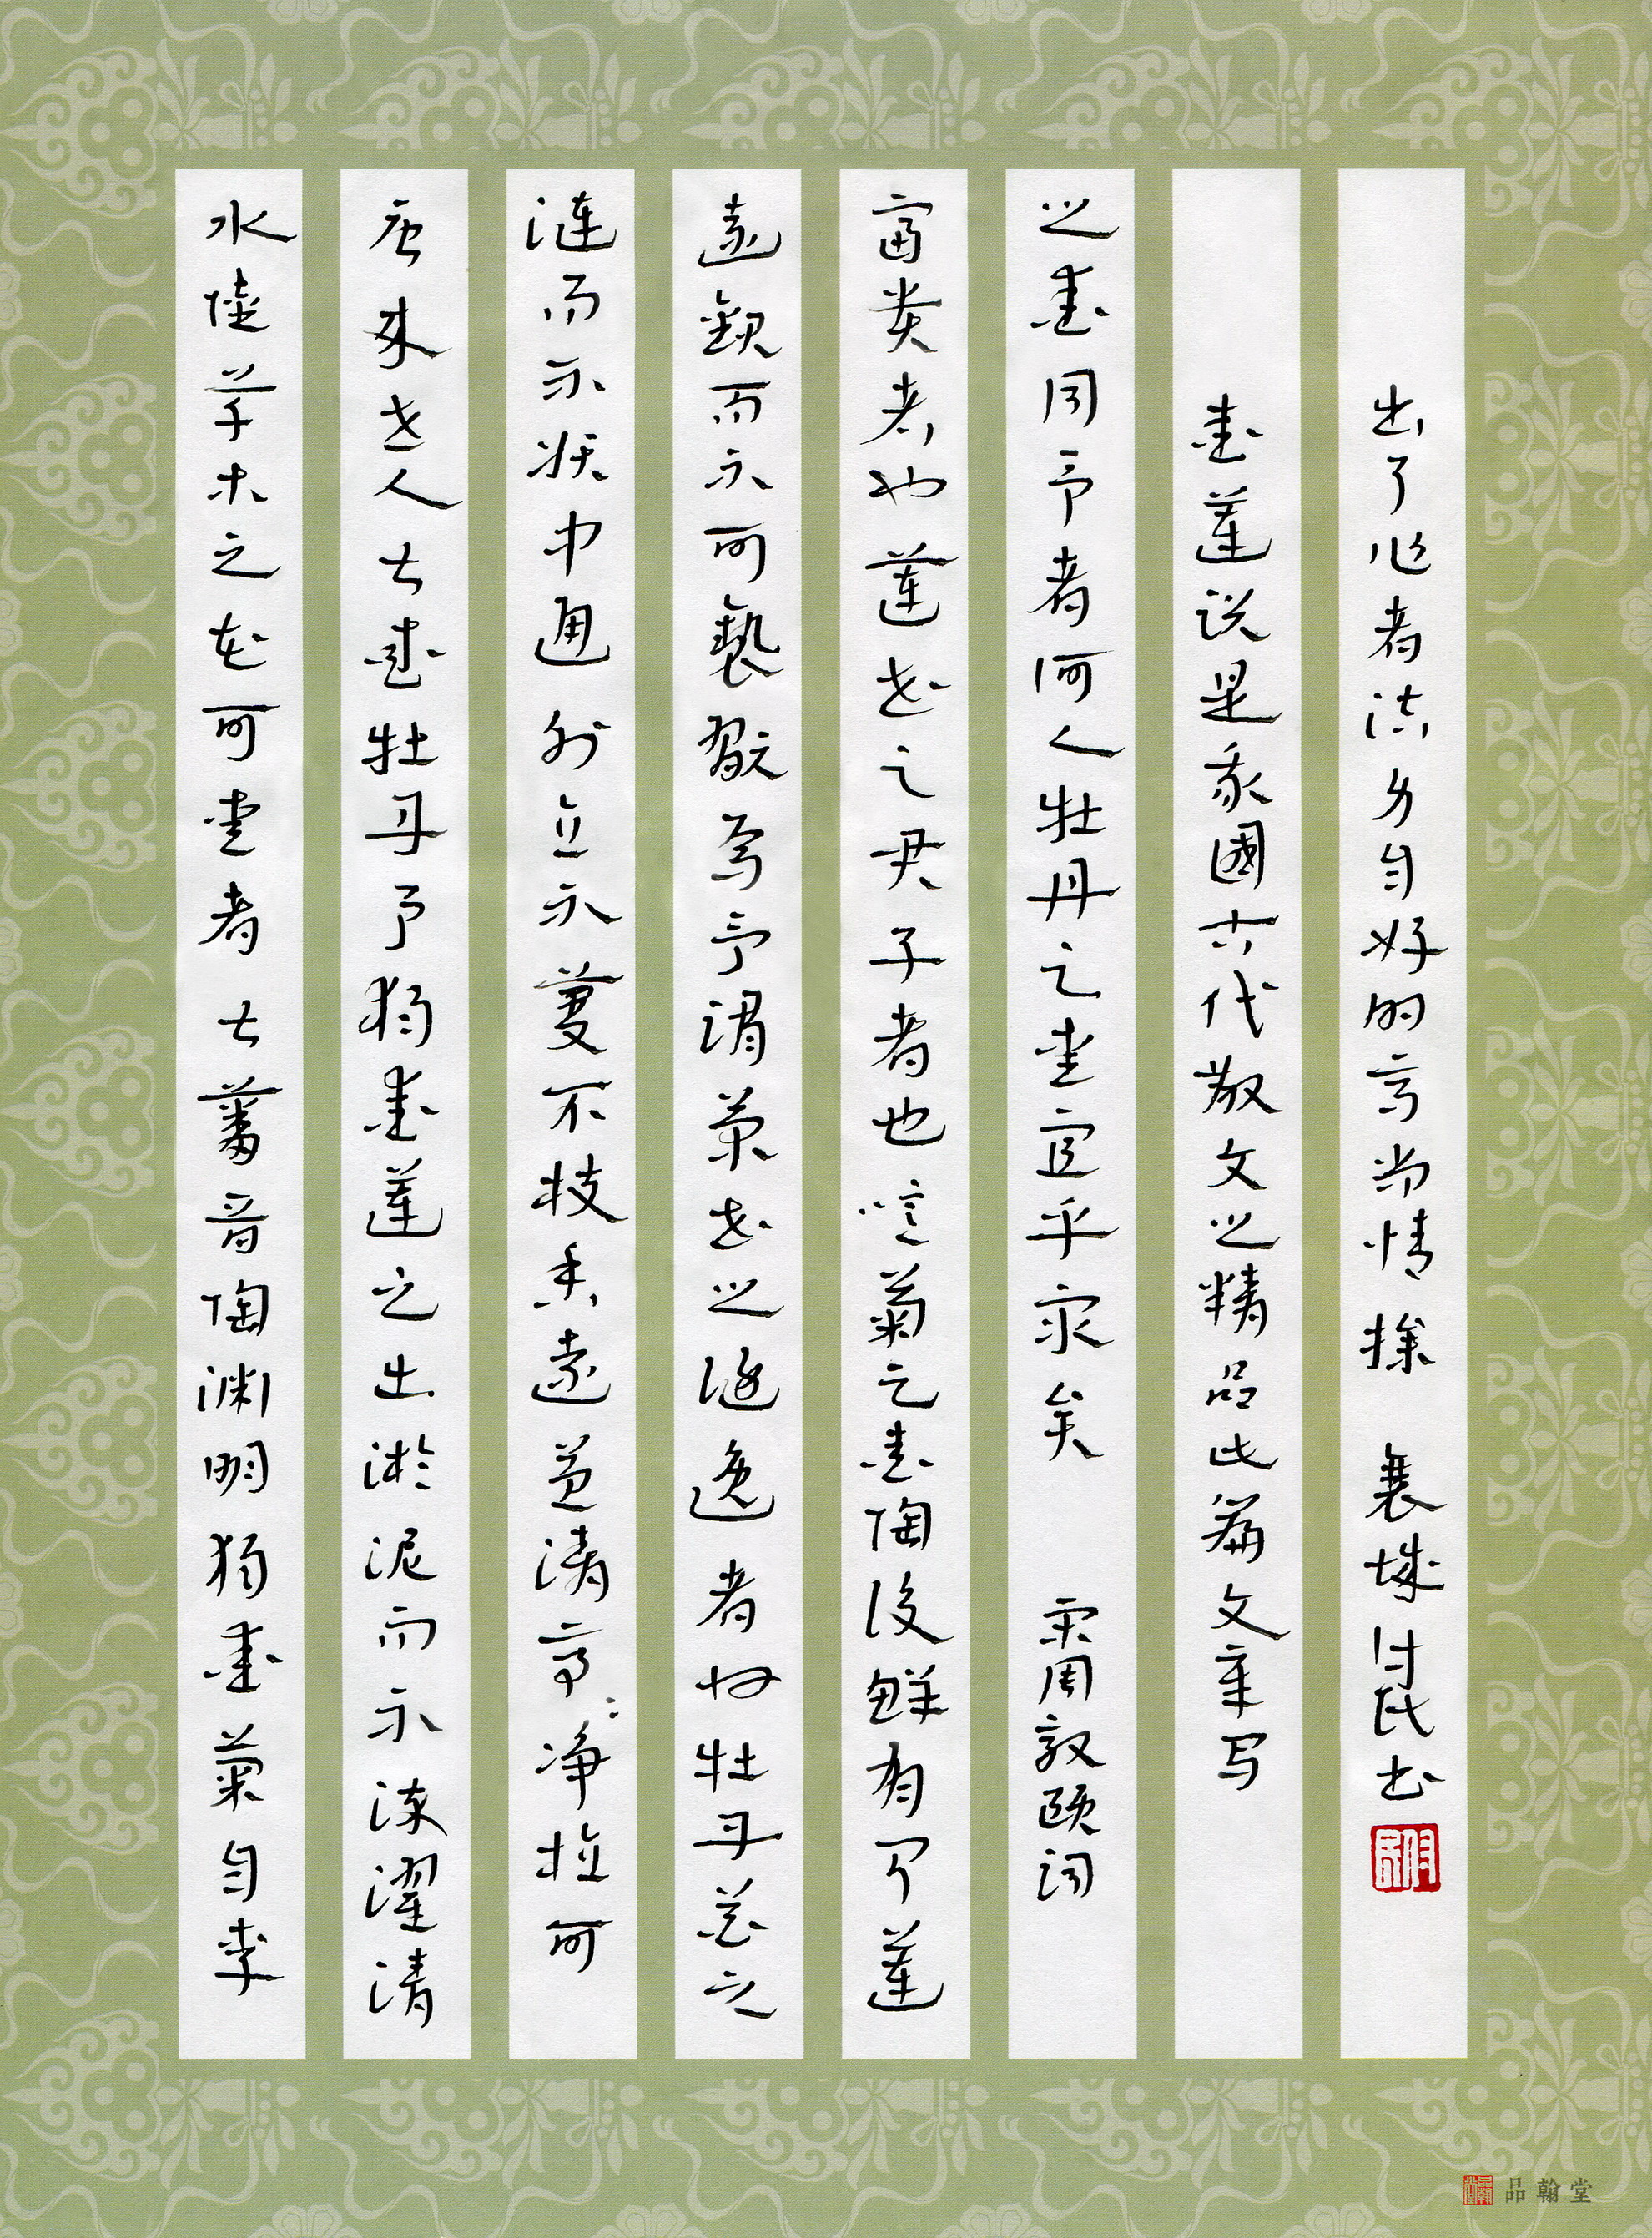 水陸草木之花可愛者甚蕃晋陶渊明獨愛菊自李
唐来世人甚愛牡丹予獨愛蓮之出淤泥而不染濯清
漣而不妖中通外直不蔓不枝香遠益清亭々净植可
遠觀而不可褻翫焉予謂菊花之隐逸者也牡丹花之
富贵者也蓮花之君子者也噫菊之愛陶後鲜有闻蓮
之愛同予者何人牡丹之愛宜乎眾矣 宋周敦颐词
愛蓮说是我國古代散文之精品此篇文章写
出了作者洁身自好的高尚情操 襄城付氏书
品翰堂